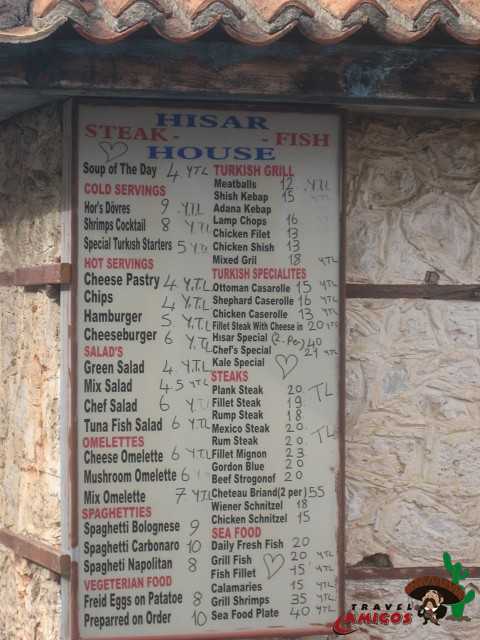 HISAR
STEAK - - FISH
HOUSE
Soup of The Day 4 YTL
COLD SERVINGS
Hor's Dövres 9 .YTL
Shrimps Cocktail 8 YTL
Special Turkısh Starters 5 YTL
HOT SERVINGS
Cheese Pastry 4 Y.TL
Chips 4 Y.TL
Hamburger 5 Y.TL
Cheeseburger 6 Y.TL
SALAD'S
Green Salad 4 YTL
Mix Salad 4.5 YTL
Chef Salad 6 YTL
Tuna Fish Salad 6 YTL
OMELETTES
Cheese Omelette 6 YTL
Mushroom Omelette 6
Mix Omelette 7 YTL
SPAGHETTIES
Spaghetti Bolognese 9
Spaghetti Carbonaro 10
Spagheti Napolitan 8
VEGETERIAN FOOD
Freid Eggs on Patatoe 8
Preparred on Order 10
TURKISH GRILL
Meatballs 12 .YTL
Shish Kebap 15 YTL
Adana Kebap
Lamp Chops 16
Chicken Filet 13
Chicken Shish 13
Mixed Gril 18 YTL
TURKISH SPECIALITES
Ottoman Casarolle 15 YTL
Shephard Caserolle 16 YTL
Chicken Caserolle 13 YTL
Fillet Steak With Cheese in 20 YTL
Hısar Special (2. Per) 40
Chef's Special 21 YTL
Kale Special
STEAKS
Plank Steak 20 TL
Fillet Steak 19
Rump Steak 18
Mexico Steak 20
Rum Steak 20 TL
Fillet Mignon 23
Gordon Blue 20
Beef Strogonof 20
Cheteau Briand(2 per) 55
Wiener Schnitzel 18
Chicken Schnitzel 15
SEA FOOD
Daily Fresh Fish 20
Grill Fish 20 YTL
Fish Fillet 15 YTL
Calamaries 15 YTL
Grill Shrimps 35 YTL
Sea Food Plate 40 YTL
TRAVEL
AMIGOS